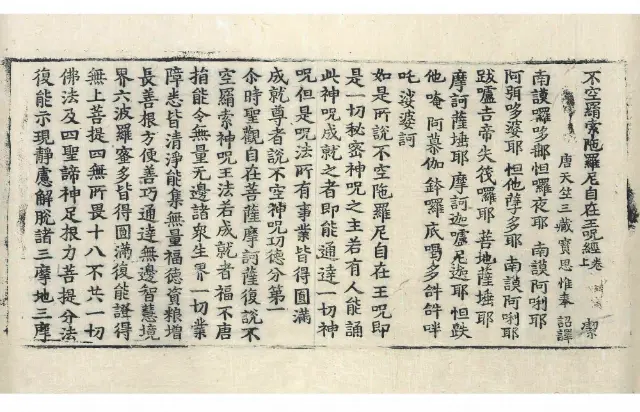 不空羂索陁羅尼自在王呪經卷上 潔
唐天竺三藏寶思惟奉 詔譯
南謨囉哆娜怛囉夜耶 南謨阿唎耶
阿弭哆婆耶 怛他孽多耶 南謨阿唎耶
跋嚧吉帝失筏囉耶 菩地薩埵耶
摩訶薩埵耶 摩訶迦嚧尼迦耶 怛跌
他唵阿慕伽鉢囉底喝多𤙖𤙖吽
吒 娑婆訶
如是所說不空陁羅尼自在王呪即
是一切秘密神呪之主若有人能誦
此神呪成就之者即能通達一切神
呪但是呪法所有事業皆得圓滿
成就尊者說不空神呪功德分第一
尒時聖觀自在菩薩摩訶薩復說不
空羂索神呪王法若成就者福不唐
捐能令無量无邊諸衆生界一切業
障悉皆清淨能集無量福德資粮增
長善根方便善巧通達無邊智慧境
界六波羅蜜多皆得圓滿復能證得
無上菩提四無所畏十八不共一切
佛法及四聖諦神足根力菩提分法
復能示現靜慮解脫諸三摩地三摩